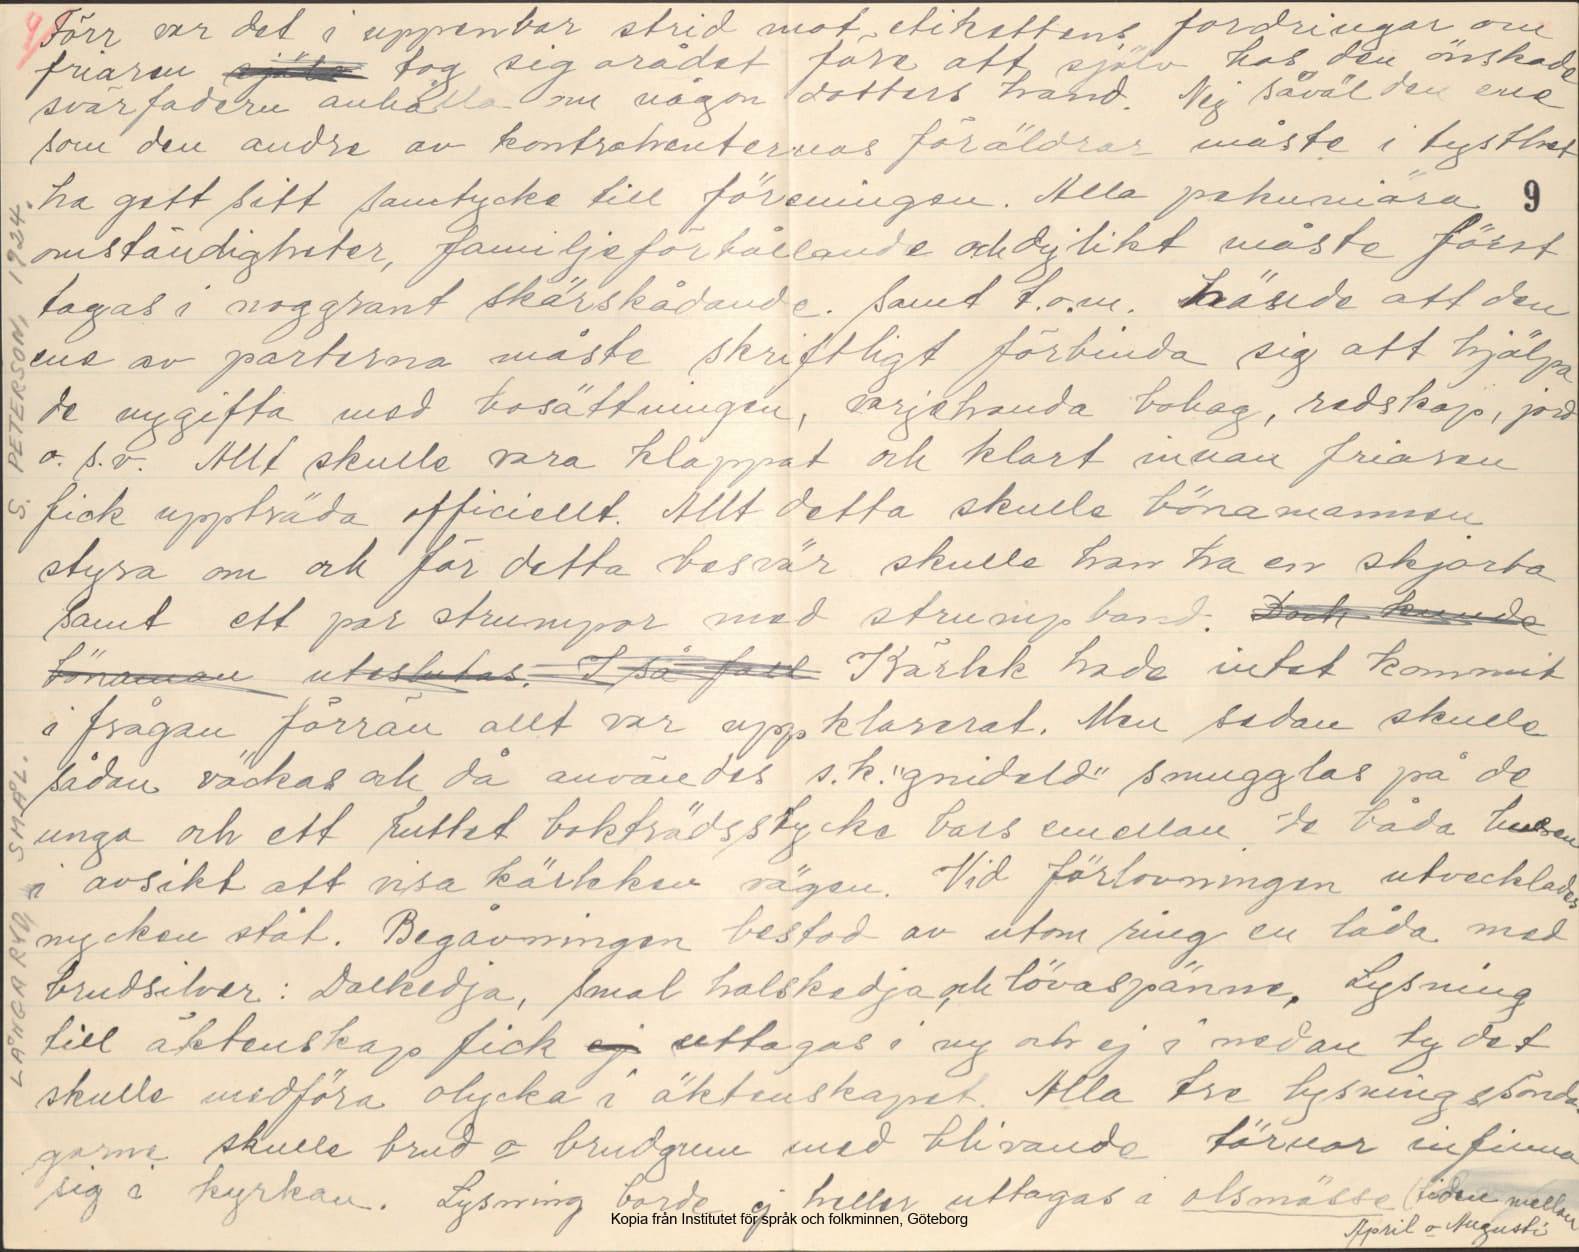 Förr var det i uppenbar strid mot etikettens fordringar om
friaren själv tog sig orådet före att själv hos den önskade
svärfadern anhålla om någon dotters hand. Nej såväl den ene
som den andre av kontrahenternas föräldrar måste i tysthet
ha gett sitt samtycke till föreningen. Alla pekuniära 9
omständigheter, familjeförhållande och dylikt måste först
tagas i noggrant skärskådande. samt t.o.m. hände att den
ene av parterna måste skriftligt förbinda sig att hjälpa
de nygifta med bosättningen, varjehanda bohag, redskap, jord
o.s.v. Allt skulle vara klappat och klart innan friaren
fick uppträda officiellt. Allt detta skulle bönamannen
styra om och för detta besvär skulle han ha en skjorta
samt ett par strumpor med strumpband. Dock kunde
bönaman uteslutas. I så fall Kärlek hade intet kommit
i frågan förrän allt var uppklarerat. Men sedan skulle
sådan väckas och då användes s.k. "gnideld" smugglas på de
unga och ett bokträdsstycke bars emellan de båda husen
i avsikt att visa kärleken vägen. Vid förlovningen utvecklades
mycken ståt. Begåvningen bestod av utom ring en låda med
brudsilver: Dalkedja, smal halskedja, och lövaspänne. Lysning
till äktenskap fick ej uttagas i ny och ej i nedan ty det
skulle medföra olycka i äktenskapet. Alla tre lysningssönda-
garne skulle brud o brudgum med blivande tärnor infinna
sig i kyrkan. Lysning borde ej heller uttagas i olsmässe (tiden mellan
April o Augusti
LÅNGARYD, SMÅL. S. PETERSON, 1924.
Kopia från Institutet för språk och folkminnen, Göteborg